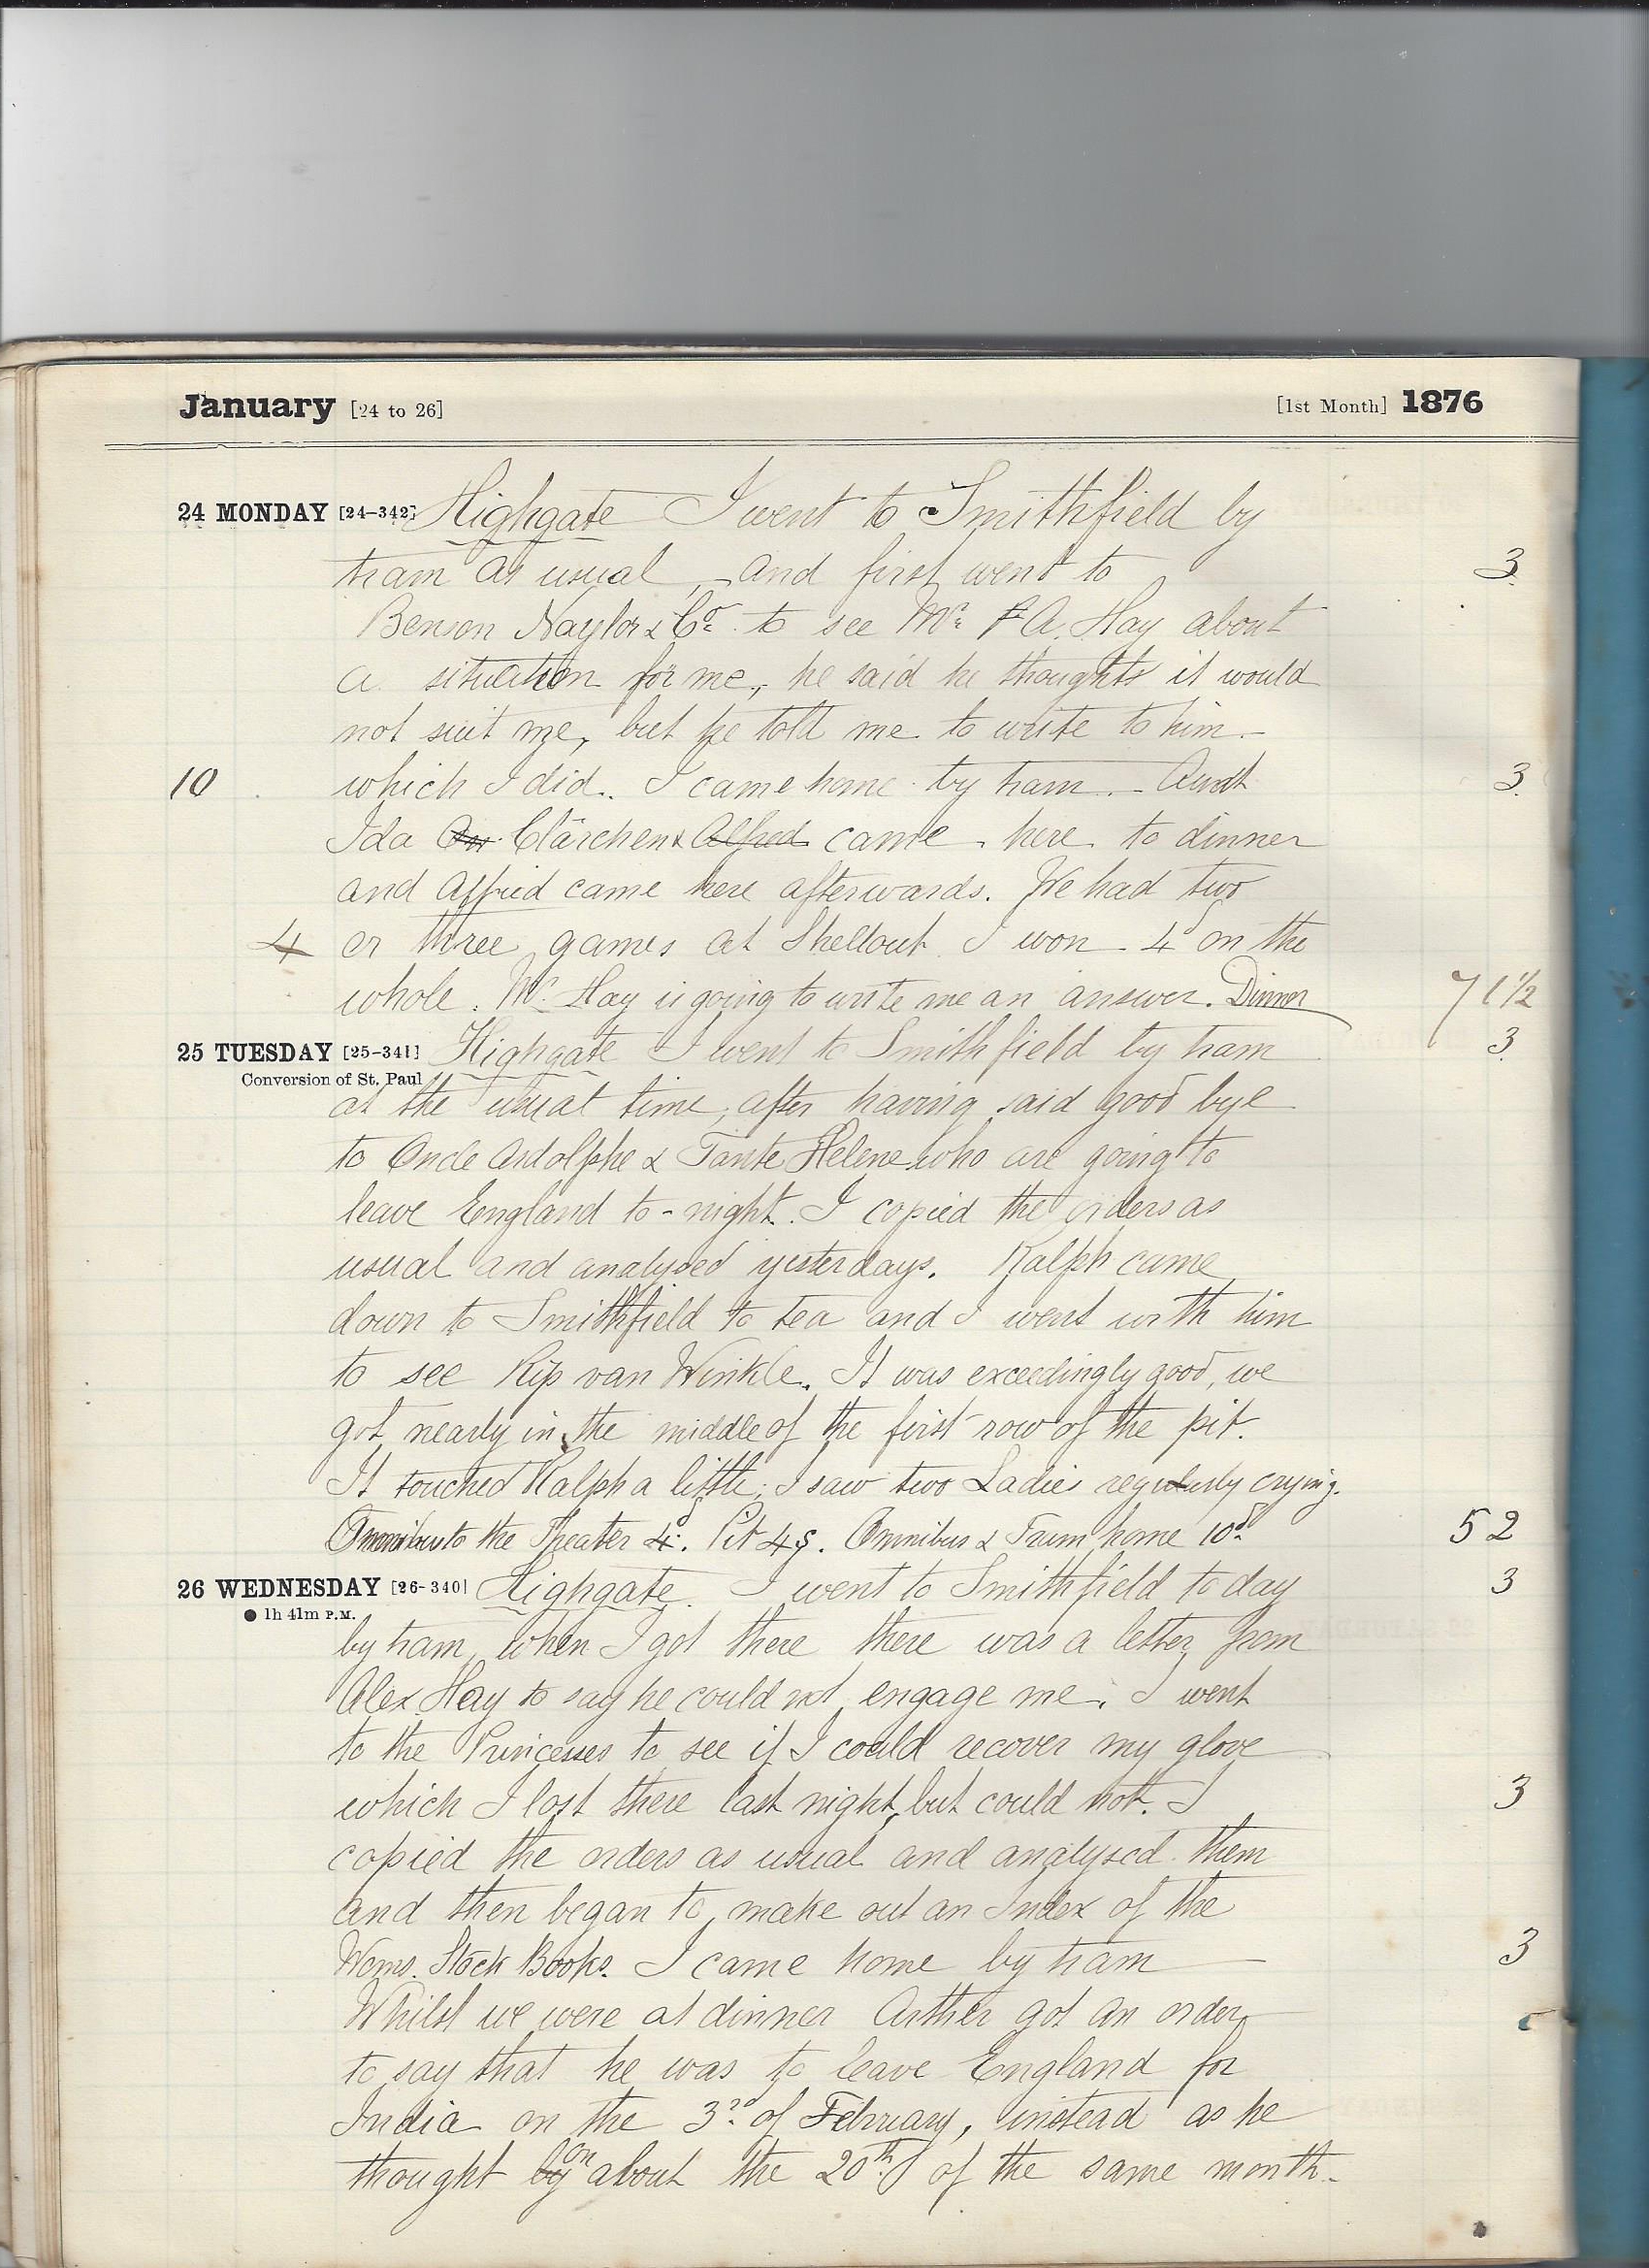 January [24 to 26] [1st Month] 1876
24 MONDAY [24-342] Highgate I went to Smithfield by
tram as usual, and first went to 3
Benson Naylor & Co. to see Mr. A. Hay about
a situation for me, he said he thought it would
not suit me, but he told me to write to him -
10 which I did. I came home by tram. - Aunt 3
Ida Clärchen & Alfred came here to dinner
and Alfred came here afterwards. We had two
4 or three games at Shellout. I won 4d on the
whole. Mr. Hay is going to write me an answer. Dinner 7 1 1/2
25 TUESDAY [25-341] Highgate I went to Smithfield by tram 3
Conversion of St. Paul
at the usual time, after having said good bye
to Oncle Adolphe & Tante Helene who are going to
leave England to-night. I copied the orders as
usual and analysed yesterdays. Ralph came
down to Smithfield to tea and I went with him
to see Rip van Winkle. It was exceedingly good, we
got nearly in the middle of the first row of the pit.
It touched Ralph a little; I saw two Ladies regularly crying.
Omnibus to the Theater 4d. Pit 4s. Omnibus & Tram home 10d. 5 2
26 WEDNESDAY [26-340] Highgate. I went to Smithfield to day 3
● 1h 41m P.M.
by tram, when I got there there was a letter from
Alex Hay to say he could not engage me. I went
to the Princesses to see if I could recover my glove
which I lost there last night, but could not. I 3
copied the orders as usual and analysed them
and then began to make out an Index of the
Woms. Stock Books. I came home by tram 3
Whilst we were at dinner Arther got an order
to say that he was to leave England for
India on the 3rd of February, instead as he
thought by on about the 20th of the same month.